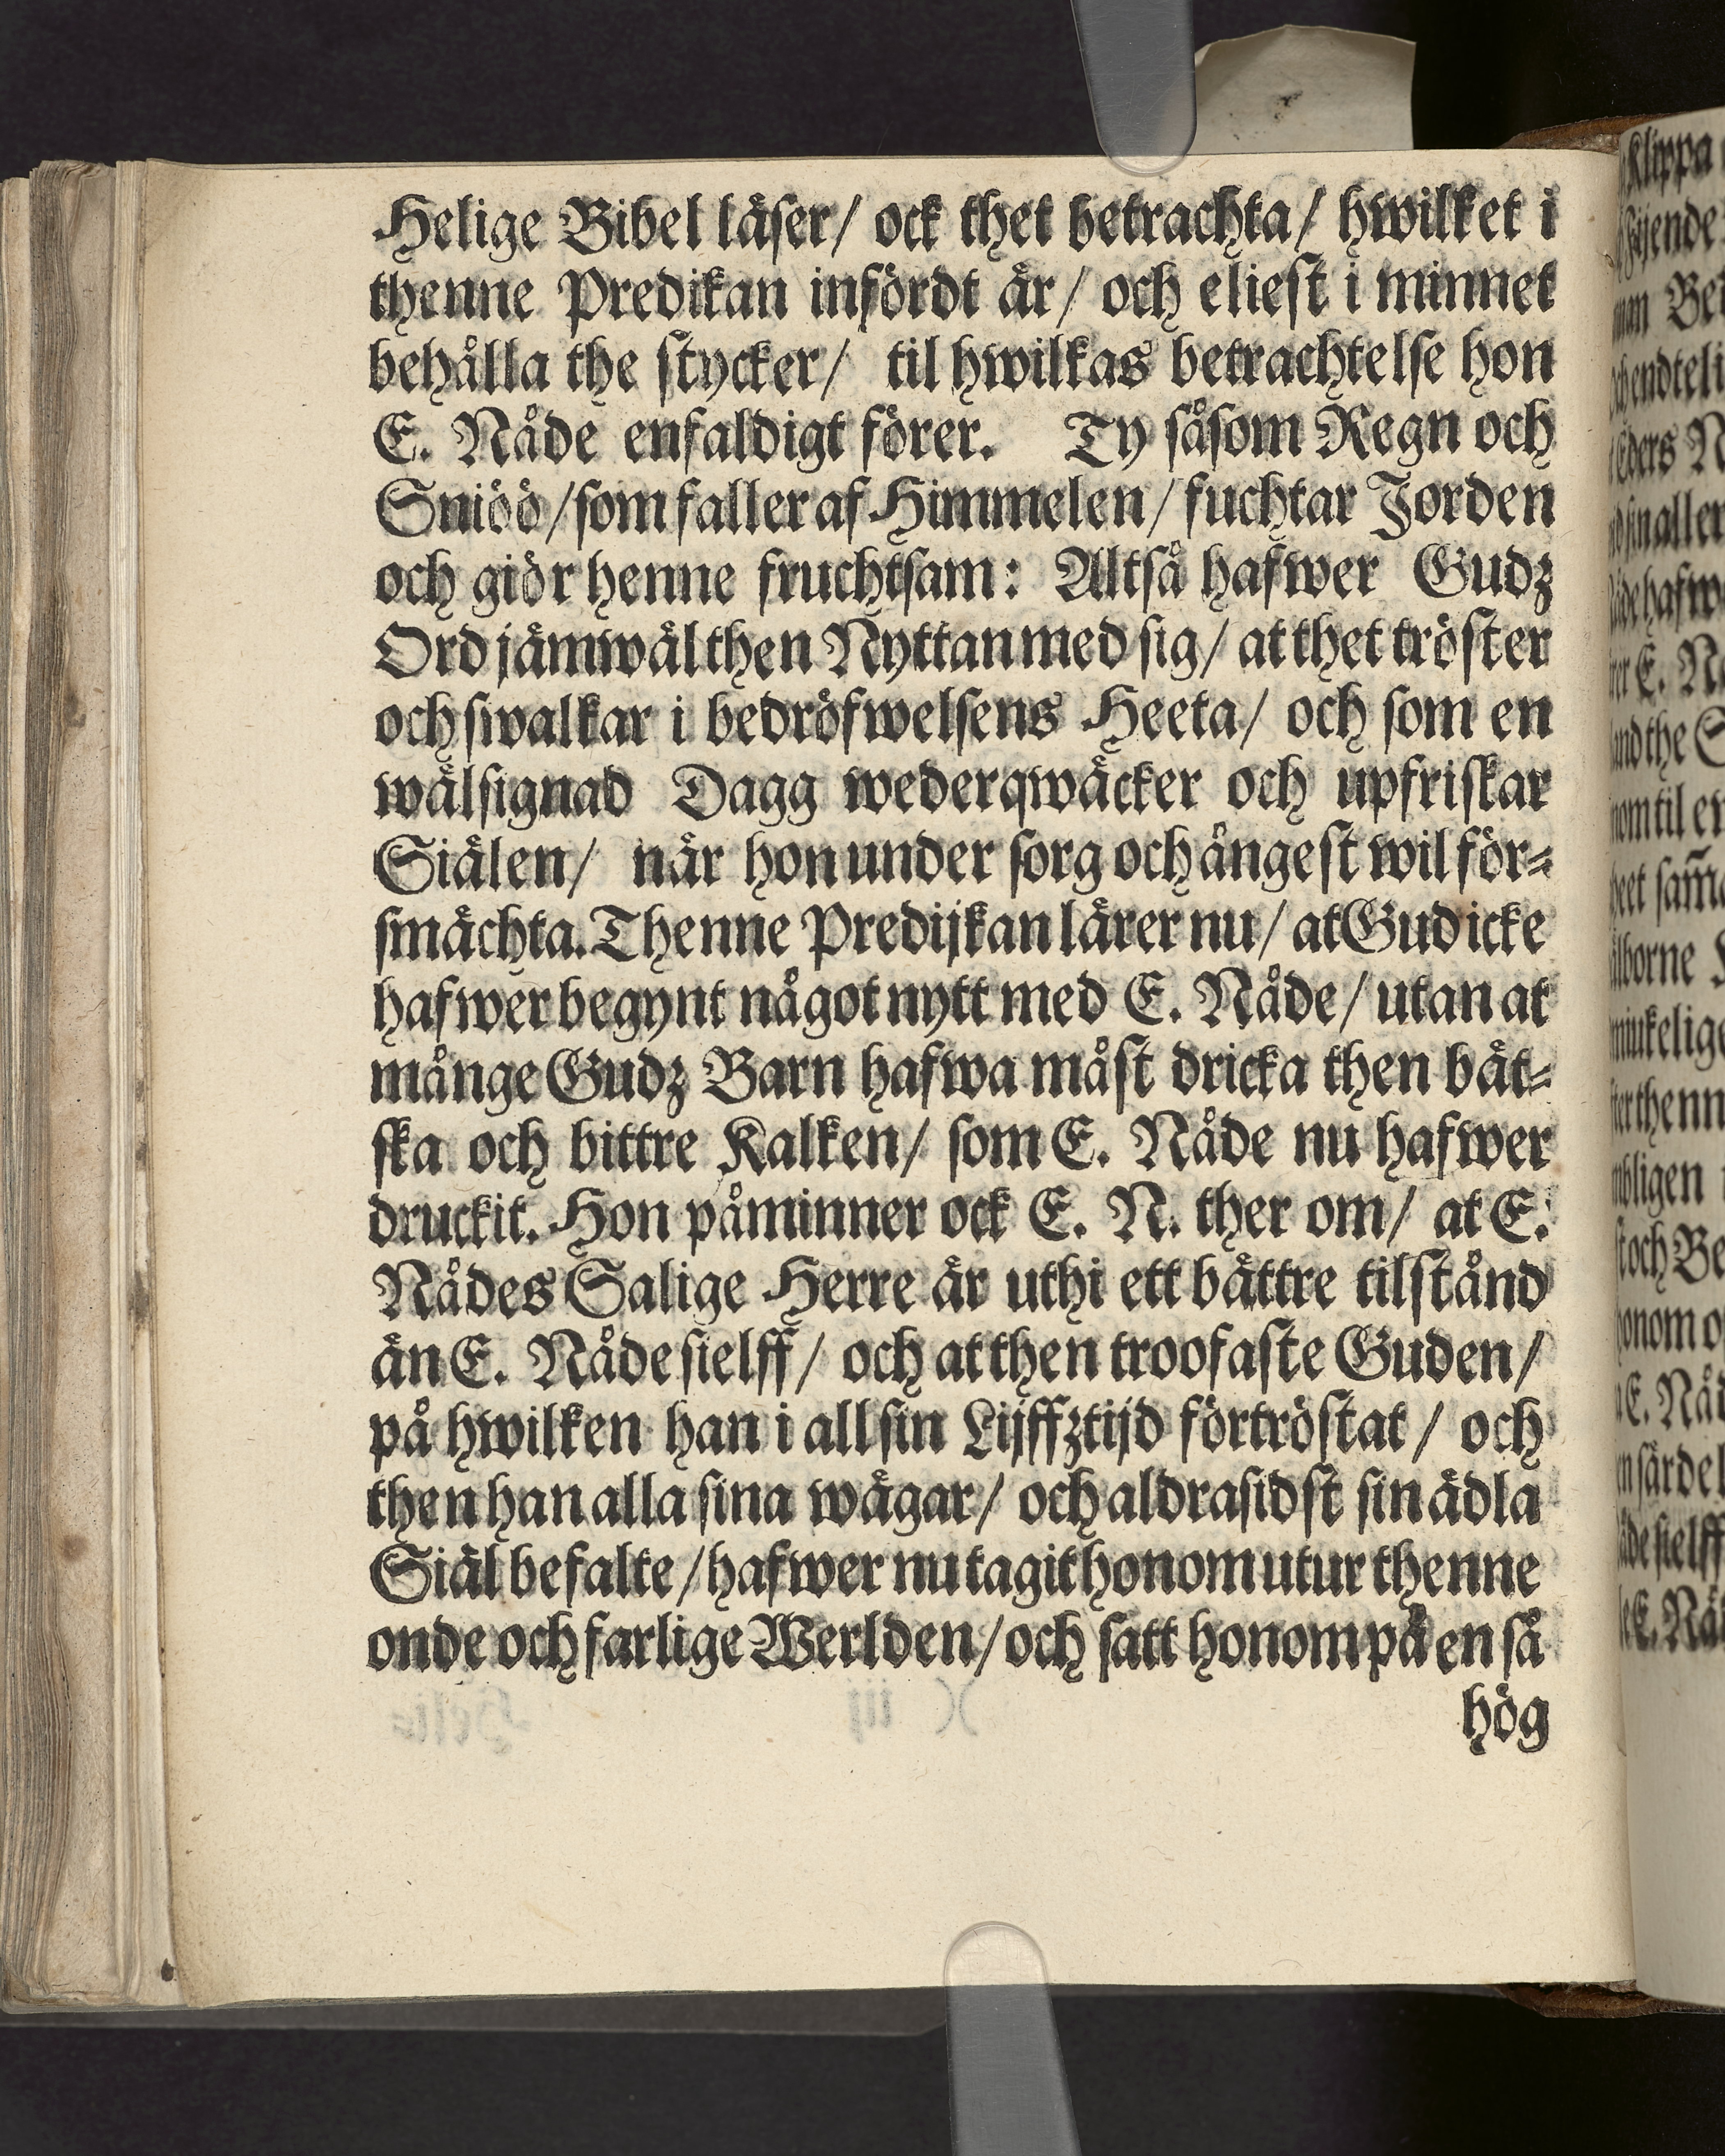 Helige Bibel läser/ ock thet betrachta/ hwilket i
thenne Predikan infördt är/ och eliest i minnet
behålla the stycker/ til hwilkas betrachtelse hon
E. Nåde enfaldigt förer. Ty såsom Regn och
Sniöö/ som faller af Himmelen/ fuchtar Jorden
och giör henne fruchtsam: Altså hafwer Gudz
Ord jämwäl then Nyttan med sig/ at thet tröster
och swalkar i bedröfwelsens Heeta/ och som en
wälsignad Dagg wederqwäcker och upfriskar
Siälen/ när hon under sorg och ångest wil för-
smächta. Thenne Predijkan lärer nu/ at Gud icke
hafwer begynt något nytt med E. Nåde/ utan at
månge Gudz Barn hafwa måst dricka then bät-
ska och bittre Kalken/ som E. Nåde nu hafwer
druckit. Hon påminner ock E. N. ther om/ at E.
Nådes Salige Herre är uthi ett bättre tilstånd
än E. Nåde sielff/ och at then troofaste Guden/
på hwilken han i all sin Lijffztijd förtröstat/ och
then han alla sina wägar/ och aldrasidst sin ädla
Siäl befalte/ hafwer nu tagit honom utur thenne
onde och farlige Werlden/ och satt honom på en så
hög